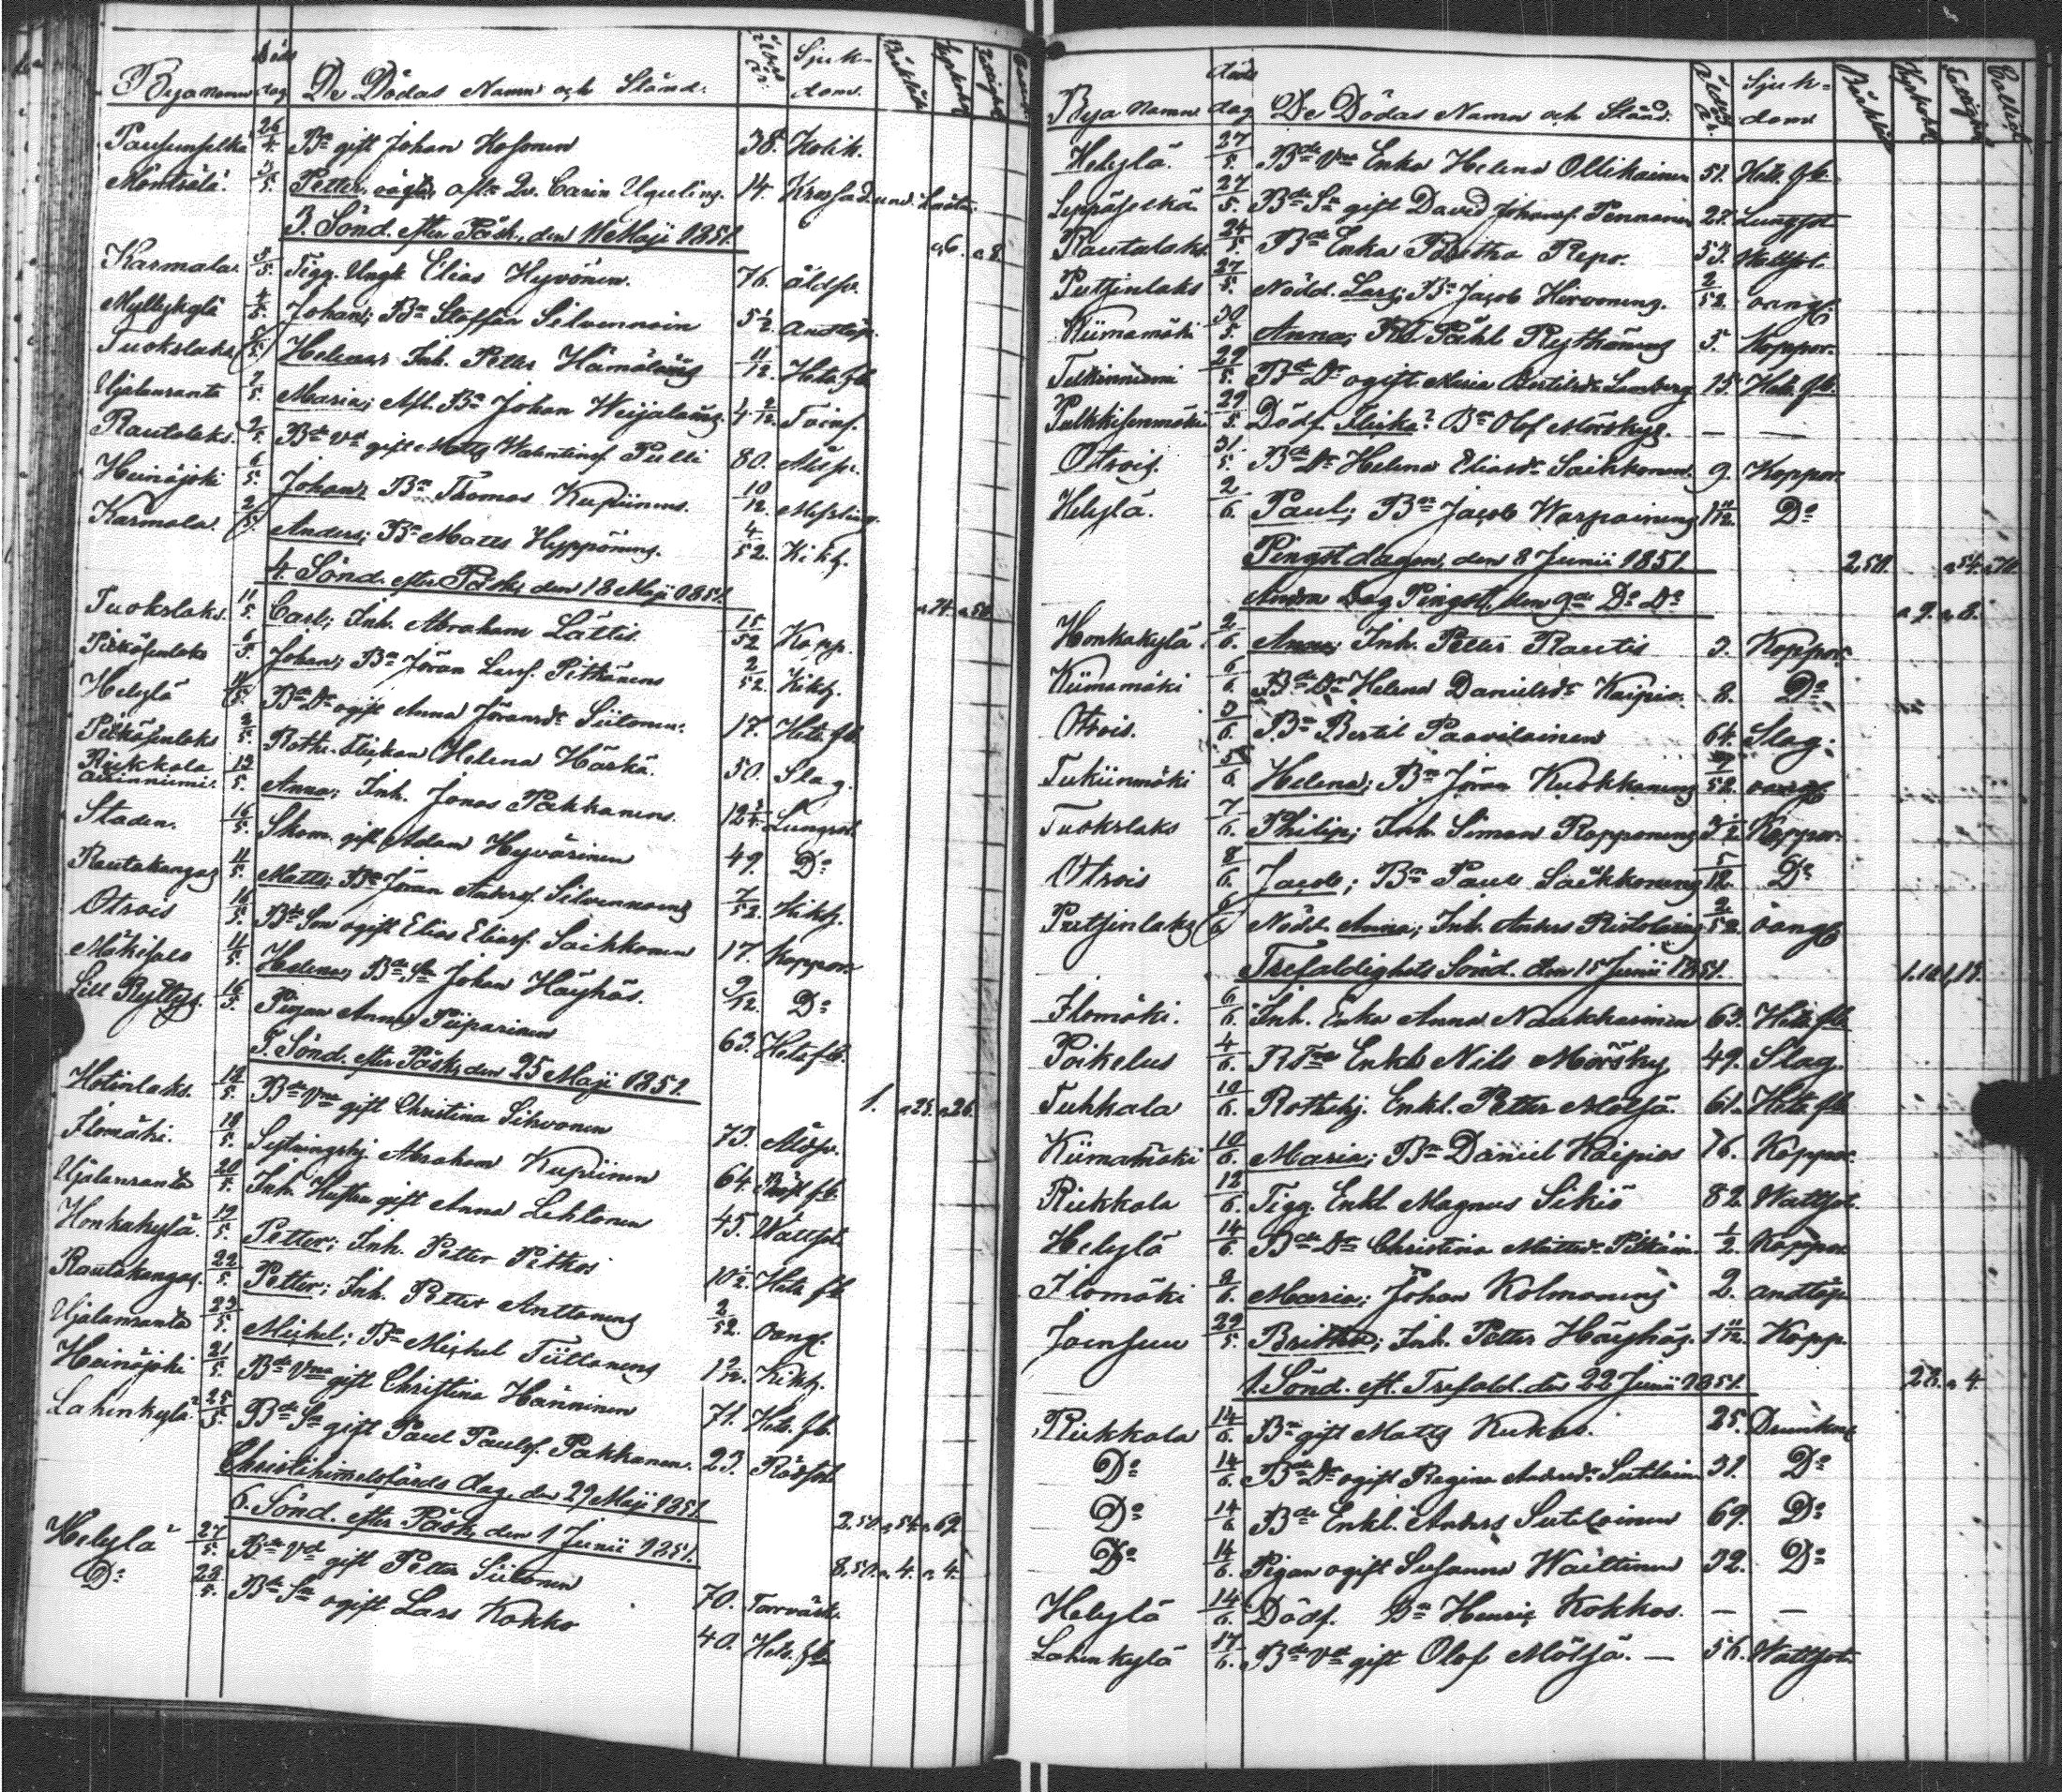 Bya namn döds dag De Dödas Namn och Stånd. Ålder år: Sjuk-dom.
26/4. Bn gift Johan Kosonen 38. Kolik.
Mentsälä. 5. Petter, oägta, Carin 14.
3. Sönd. efter Påsk, den 11 Maji 1851. 6. 8.
Karmala. 3/5. Tigg. Ungk. Elias Hyvönen. 76. åldsv.
Myllykylä 4/5. Johan; Bn Staffan Silvennoin 5 1/2. Andtäp.
Tuokslaks 5. Helena; Inh. Petter Hämäläing 11/12. Hets. fb.
Ujalanranta 7/5. Maria; Afl. Bn Johan Weijalaing. 4 2/12. Tvins.
Rautalaks. 2/5. Bde Vd gift Matts Walentinsf. Pulli 80. Ålds.
Heinäjoki 6/5. Johan; Bn Thomas Kupiinens. 10/12. Messling.
Karmala. 2/5. Anders; Bn Matts Hyppöning. 4/52. Kikh.
4. Sönd. efter Påsk, den 18 Maji 1851. 74. 50.
Tuokslaks. 11/5. Carl; Inh. Abraham Lättis. 15/52 Kopp.
Pitkäsenlaks 6/5. Johan; Bn Jöran Larsf. Pitkänens 2/52. Kikh.
Helylä 11/5. Bde Dr ogift Anna Jöransdr Siitonen. 17. Hets. fb.
Pitkäsenlaks 2/5. Rothe. Flickan Helena Härkä. 50. Slag.
Riekkala 13/5. Anna; Inh. Jonas Pakkanens. 12 1/4. Lungsot
Staden. 16/5. Skom. gift Adam Hyvärinen 49. Do
Rautakangas 11/5. Matts; Bn Jöran Andersf. Silvennoing 7/52. Kikh.
Otrois 16/5. Bde Son ogift Elias Eliasf. Saikkonen 17. Koppor.
Mäkisalo 11/5. Helena; Bde Sn Johan Häyhäs. 9/12. Do
Lill Ryttyg. 16/5. Pigan Anna Piiparinen 63. Hets. fb.
5. Sönd. efter Påsk, den 25 Maji 1851. 1. 25. 26.
Hotinlaks. 18/5. Bde Vna gift Christina Sihvonen 73. Åldsv.
Ilomäki. 19/5. Sytningshj. Abraham Kupiinen 64. Bröst fb.
Ujalanranta 20/5. Inh. Hustru gift Anna Lehtonen 45. Wattsot
Honkakylä. 19/5. Petter; Inh. Petter Pitkos 10 1/2. Hets fb
Rautakangas. 22/5. Petter; Inh. Petter Anttoning 2/52. oang.
Ujalanranta 23/5. Michel; Bn Michel Tiittanens 1 2/12. Kikh.
Heinäjoki 21/5. Bde Vna gift Christina Hänninen 71. Hets. fb.
Lahenkylä 25/5. Bde Sn gift Paul Paulsf. Pakkanen. 23. Rödsot
Christihimmelsfärds dag. den 29 Maji 1851. 2.50. 54. 69.
6. Sönd. efter Påsk, den 1 Junii 1851. 8.50. 4. 4.
Helylä 27/5. Bde Vd gift Petter Siitonen 70. Torrvärk.
Do 28/5. Bde Sn ogift Lars Kokko 40. Hets. fb
Bya Namn döds dag De Dödas Namn och Stånd. Ålder År. Sjuk-dom
Helylä. 27/5. Bde Vna Enka Helena Ollikainen 51. Hets. fb.
Leppäselkä 27/5. Bde Sn gift David Johansf. Pennanen 27. Lungsot
Rautalaks. 24/5. Bde Enka Beretha Repo. 53. Wattsot.
Putsinlaks 27/5. Nöild. Lars; Bn Jacob Hirvoning. 2/52. oangf.
Kiimamäki 30/5. Anna; Bn Påhl Rytköning 5. Koppor.
Telkinniemi 29/5. Bde Dr ogift Maria Bertilsdr Lamberg 15. Hets. fb.
Pulkkisenmäki 29/5. Dödf. Flicka? Bn Olof Mörskyg. — —
Otrois. 31/5. Bde Dr Helena Eliasdr Saikkonen. 9. Koppor.
Helylä. 2/6. Paul; Bn Jacob Warpaineng 1 11/12. Do
Pingst dagen, den 8 Junii 1851. 2,50. 54. 70.
Andra Dag Pingst, den 9de Do Do 9. 8.
Honkakylä 2/6. Anna; Inh. Petter Rautis 3. Koppor.
Kiimamäki 6/6. Bde Dr Helena Danielsdr Kaipia. 8. Do
Otrois. 3/6. Bn Bertil Paavilainen 64. Slag.
Tukiinmäki 5/6. Helena; Bn Jöran Kuokkaneng 52. oangf
Tuokslaks 7/6. Philip; Inh. Simon Ropponeng Koppor.
Otrois 8/6. Jacob; Bn Paul Saikkoneng 5/12. Do
Putsinlaks 6/6. Nödd. Anna; Inh. Anders Ristolaing 2/52. oangf
Trefaldighets Sönd. den 15 Junii 1851.
Ilomäki. 6/6. Inh. Enka Anna Naukkarinen 63. Hets. fb
Poikelus 4/6. Enkl. Nils Mörsky 49. Slag.
Tuhkala 10/6. Rothehj. Enkl. Petter Mölsä. 61. Hets. fb
Kiimamäki 10/6. Maria; Bn Daniel Kaipias 76. Koppor.
Riekkala 12/6. Tigg. Enkl. Magnus Sikiö 82. Wattsot.
Helylä 14/6. Bde Dr Christina Mattsdr Pitkäin. 1/2. Koppor
Ilomäki 2/6. Maria; Johan Kolmoneng 2. andtäp
Joensuu 29/5. Britha; Inh. Petter Häyhäs. 1 11/12. Kopp.
1. Sönd. eft. Trefald. den 22 Junii 1851. 28. 4.
Riekkala 14/6. Bn gift Matts Kukko. 25. Drunknat
Do 14/6. Bde Dr ogift Regina Andersdr Sutilain 31. Do
Do 14/6. Bde Enkl. Anders Sutilainen 69. Do
Do 14/6. Pigan ogift Susanna Waittinen 32. Do
Helylä 14/6. Dödf. Bn Henric Kokkos. — —
Lahenkylä 17/6. Bde Vd gift Olof Mölsä. — 56. Wattsot.